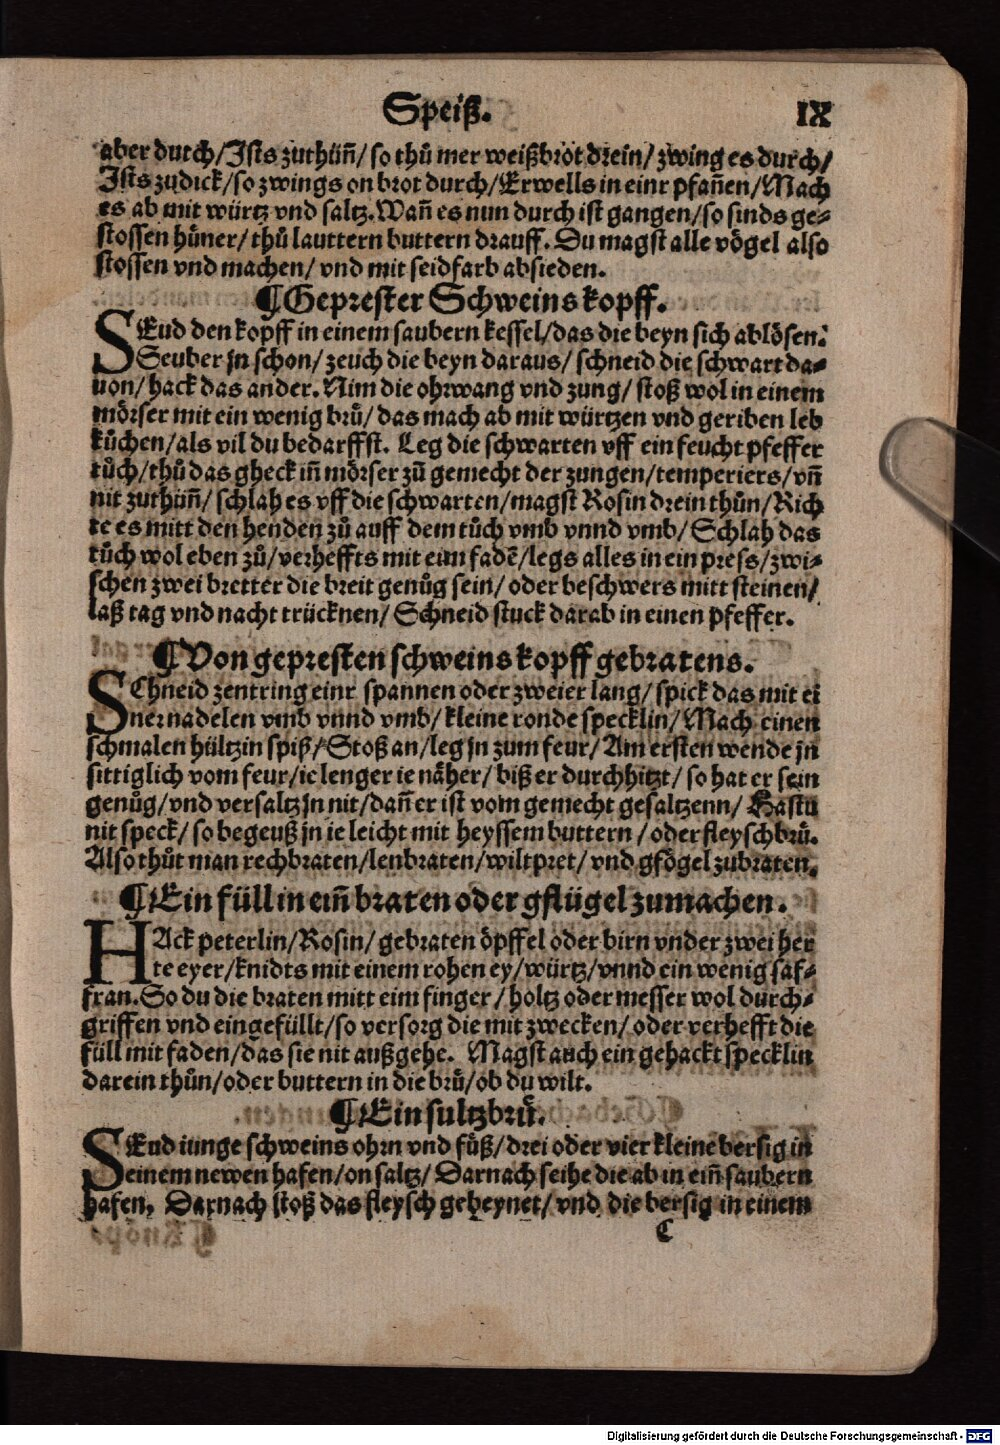 Speiß. IX
aber durch/Ists zuthüñ/so thů mer weißbrot drein/zwing es durch/
Ists zudick/so zwings on brot durch/Erwells in einr pfañen/Mach
es ab mit würtz vnd saltz. Wañ es nun durch ist gangen/so sinds ge-
stossen hüner/thů lauttern buttern drauff. Du magst alle vögel also
stossen vnd machen/vnd mit seidfarb absieden.
¶Geprester Schweinskopff.
SEud den kopff in einem saubern kessel/das die beyn sich ablösen:
Seuber jn schon/zeuch die beyn daraus/schneid die schwart da-
uon/hack das ander. Nim die ohrwang vnd zung/stoß wol in einem
mörser mit ein wenig brů/das mach ab mit würtzen vnd geriben leb
kůchen/als vil du bedarffst. Leg die schwarten vff ein feucht pfeffer
tůch/thů das gheck iñ mörser zů gemecht der zungen/temperiers/vñ
nit zuthüñ/schlah es vff die schwarten/magst Rosin drein thůn/Rich
te es mitt den henden zů auff dem tůch vmb vnnd vmb/Schlah das
tůch wol eben zů/verheffts mit eim fadē/legs alles in ein press/zwi-
schen zwei bretter die breit genůg sein/oder beschwers mitt steinen/
laß tag vnd nacht trücknen/Schneid stuck darab in einen pfeffer.
¶Von gepresten schweinskopff gebratens.
SChneid zentring einr spannen oder zweier lang/spick das mit ei
ner nadelen vmb vnnd vmb/kleine ronde specklin/Mach einen
schmalen hültzin spiß/Stoß an/leg jn zum feur/Am ersten wende jn
sittiglich vom feur/ie lenger ie näher/biß er durchhitzt/so hat er sein
genůg/vnd versaltz jn nit/dañ er ist vom gemecht gesaltzenn/Hastu
nit speck/so begeuß jn ie leicht mit heyssem buttern/oder fleyschbrů.
Also thůt man rechbraten/lenbraten/wiltpret/vnd gfögel zubraten.
¶Ein füll in eiñ braten oder gflügel zumachen.
HAck peterlin/Rosin/gebraten öpffel oder birn vnder zwei her
te eyer/knidts mit einem rohen ey/würtz/vnnd ein wenig saf-
fran. So du die braten mitt eim finger/holtz oder messer wol durch-
griffen vnd eingefüllt/so versorg die mit zwecken/oder verhefft die
füll mit faden/das sie nit außgehe. Magst auch ein gehackt specklin
darein thůn/oder buttern in die brů/ob du wilt.
¶Ein sultzbrů.
SEud iunge schweins ohrn vnd fůß/drei oder vier kleine bersig in
einem newen hafen/on saltz/Darnach seihe die ab in eiñ saubern
hafen, Darnach stoß das fleysch gebeynet/vnd die bersig in einem
C
Digitalisierung gefördert durch die Deutsche Forschungsgemeinschaft - DFG